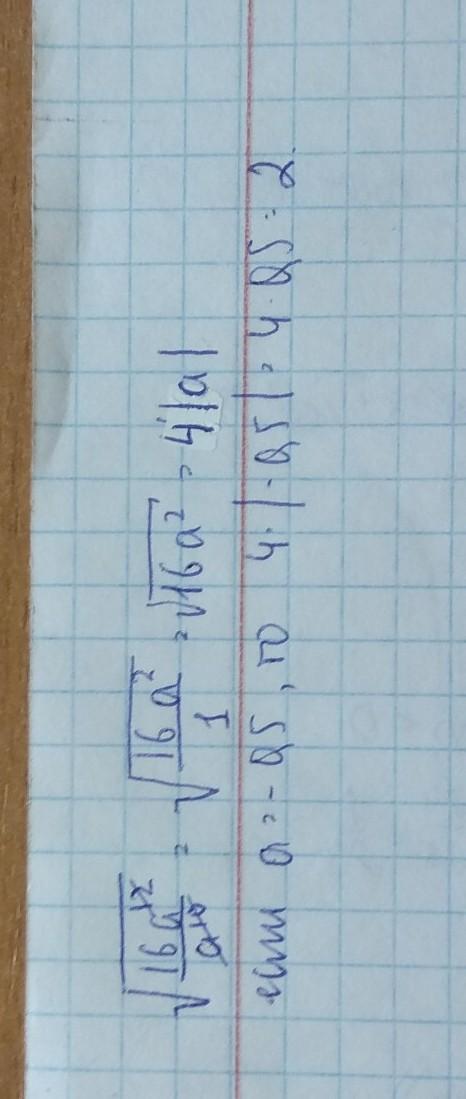 √(16a¹²/a¹⁰) = √(16a²/1) = √16a² = 4|a|
если a = -0,5, то 4·|-0,5| = 4·0,5 = 2.